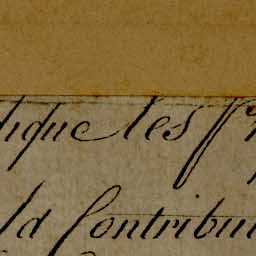 lique les
la Contribu